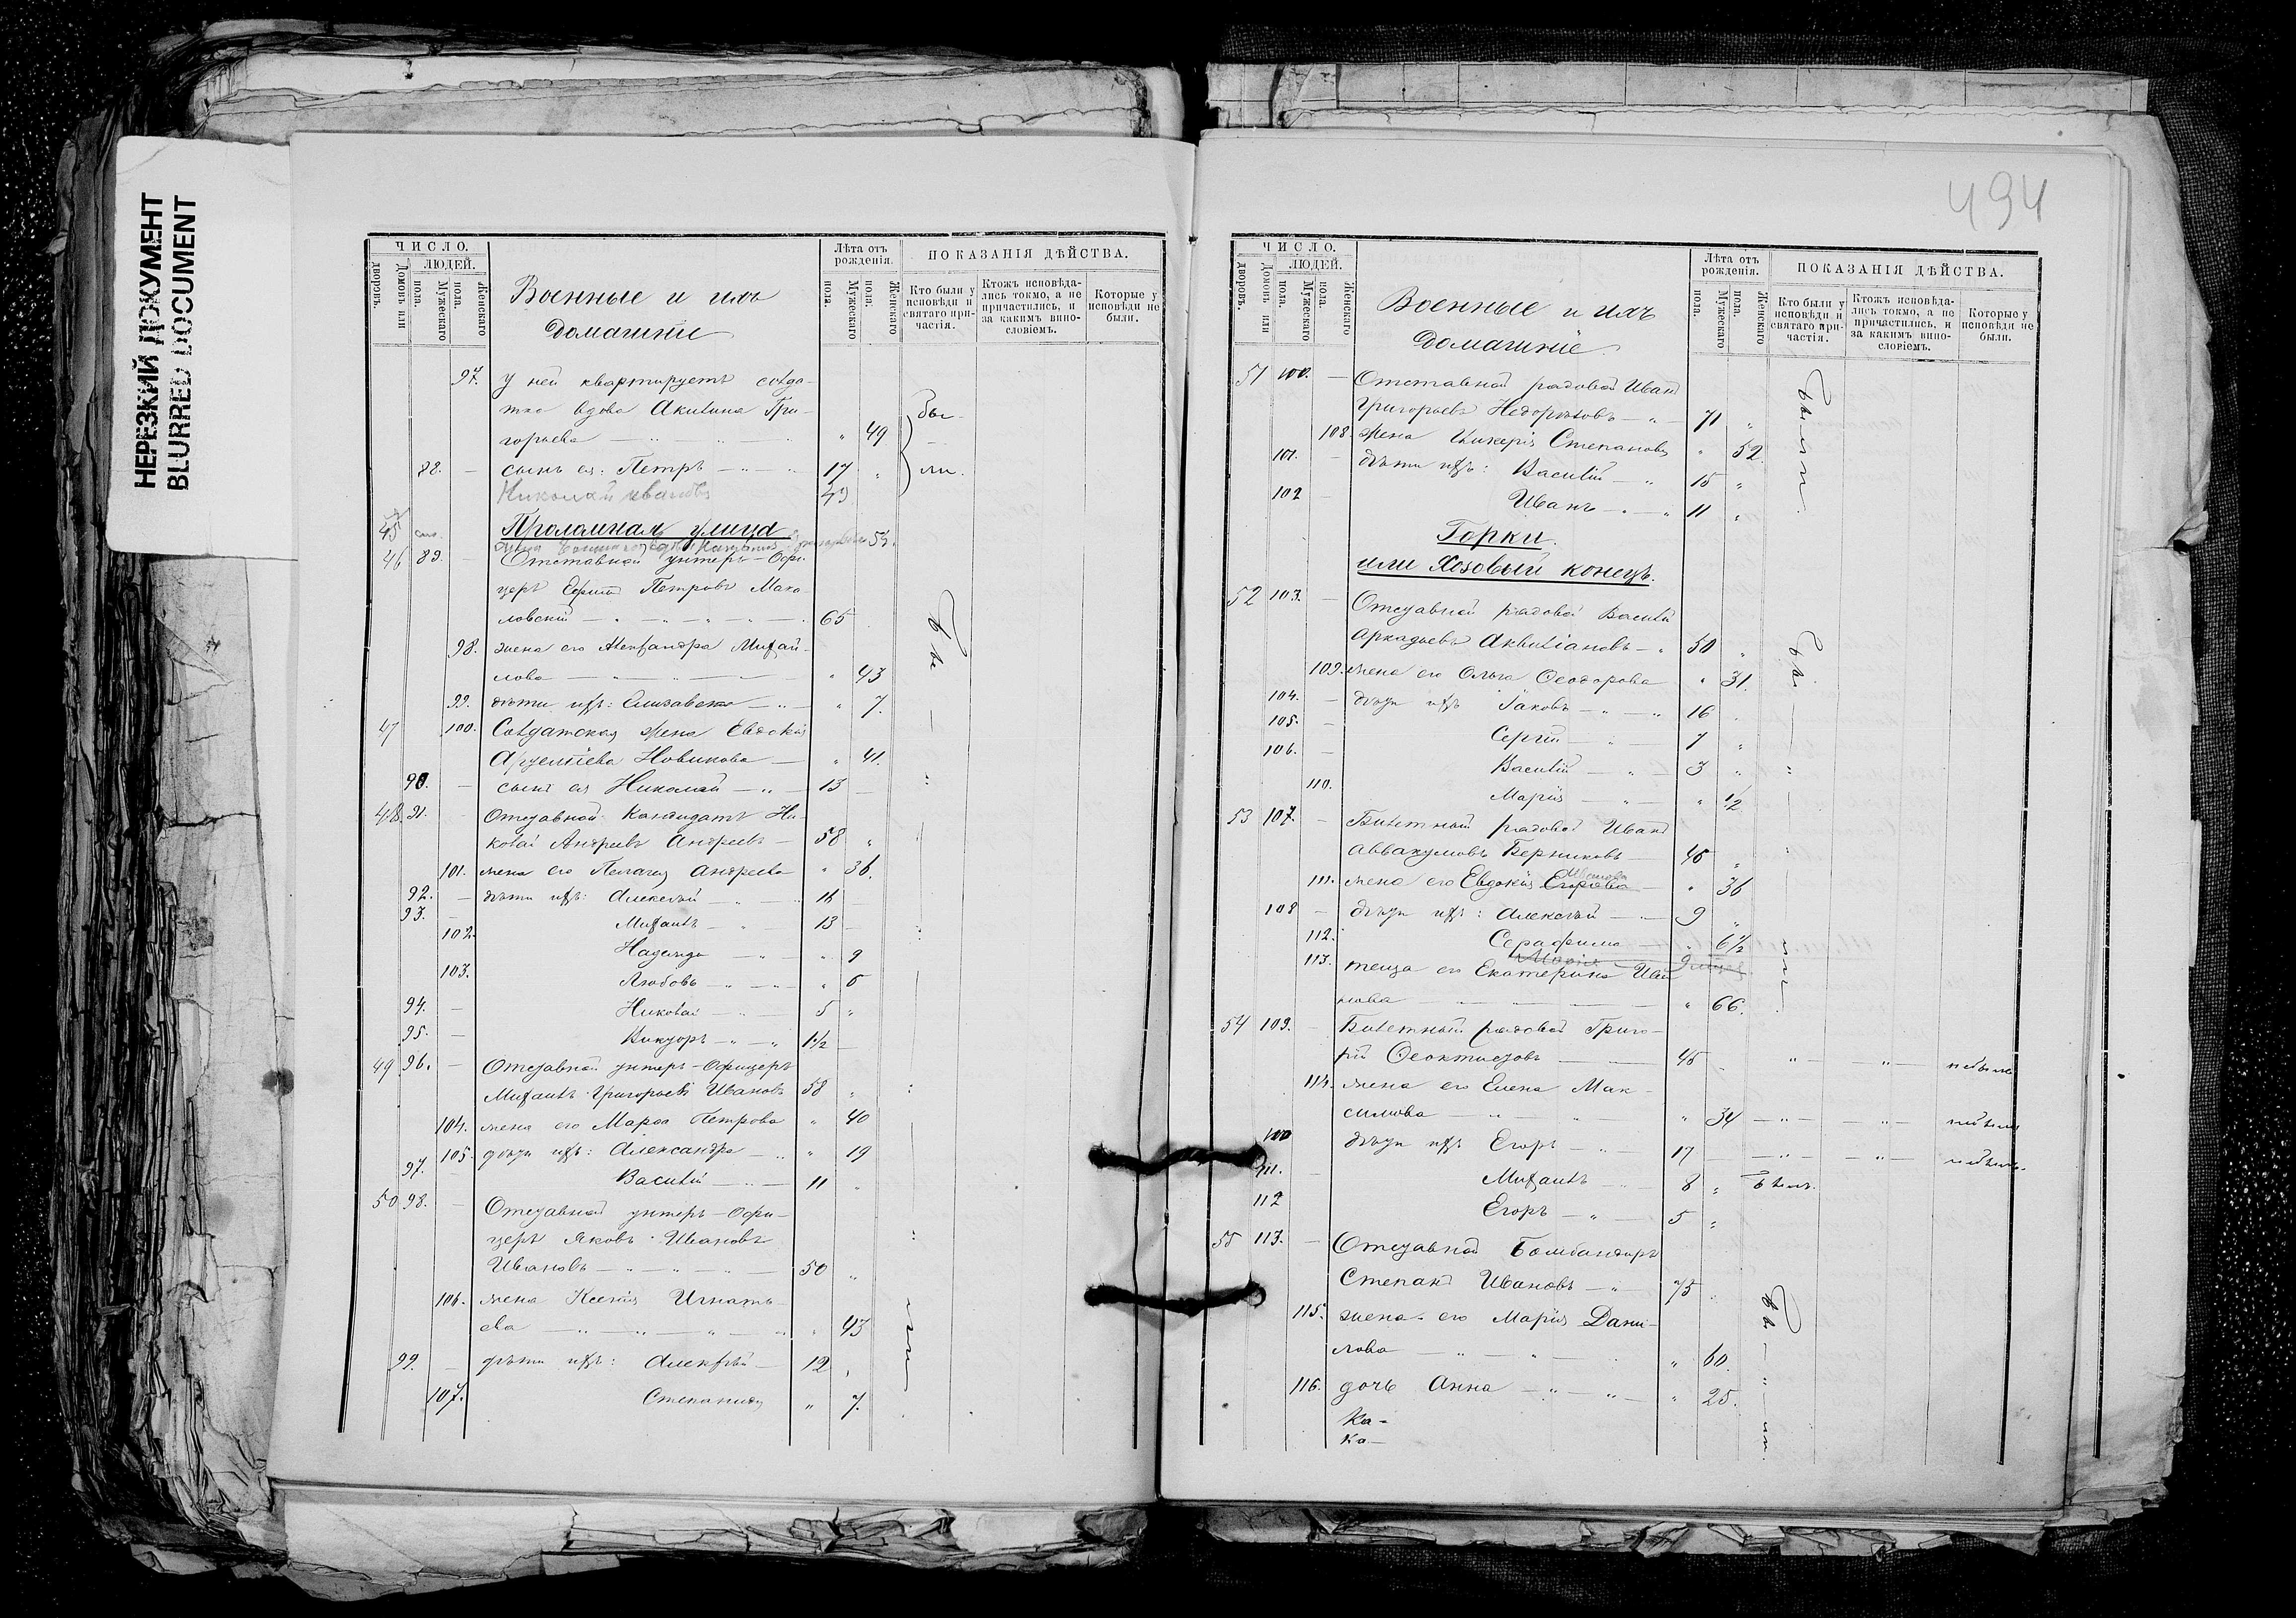 НЕРЕЗКИЙ ДОКУМЕНТ
BLURRED DOCUMENT
ЧИСЛО.
ЛЮДЕЙ.
Домовъ или дворовъ.
Мужескаго пола.
Женскаго пола.
Военные и ихъ
домашніе
Лѣта отъ рожденія.
Мужескаго пола.
Женскаго пола.
ПОКАЗАНІЯ ДѢЙСТВА.
Кто были у исповѣди и святаго причастія.
Ктожъ исповѣдались токмо, а не причастились, и за какимъ винословіемъ.
Которые у исповѣди не были.
97. у ней квартируетъ солдатка вдова Акилина Гри-
горьева 49 бы-
88. сынъ ея: Петръ 17 ли.
Николай Ивановъ 43
45
Проломная улица
53.
46 89. Отставной унтеръ-Офи-
церъ Ефимъ Петровъ Мака-
ловскій 65
98. жена его Александра Михай-
лова 43
99. дѣти ихъ: Елизавета 7.
47 100. Солдатская жена Евдокія
Новикова 41.
90. сынъ ея Николай 13
48. 91. Отставной Кандидатъ Ни-
колай Андреевъ Андреевъ 58
101. жена его Пелагея Андреева 36.
92. дѣти ихъ: Алексѣй 16
93. Михаилъ 13
102. Надежда 9
103. Любовь 6
94. Николай 5
95. Викторъ 1 1/2
49 96. Отставной унтеръ-Офицеръ
Михаилъ Григорьевъ Ивановъ 58
104. жена его Марѳа Петрова 40
105. дѣти ихъ: Александра 19
97. Василій 11
50 98. Отставной унтеръ-Офи-
церъ Яковъ Ивановъ
Ивановъ 50
106. жена Ксенія Игнать-
ева 43
99. дѣти ихъ: Алексѣй 12
107. Степанида 7.
494
ЧИСЛО.
ЛЮДЕЙ.
Домовъ или дворовъ.
Мужескаго пола.
Женскаго пола.
Военные и ихъ
домашніе
Лѣта отъ рожденія.
Мужескаго пола.
Женскаго пола.
ПОКАЗАНІЯ ДѢЙСТВА.
Кто были у исповѣди и святаго причастія.
Ктожъ исповѣдались токмо, а не причастились, и за какимъ винословіемъ.
Которые у исповѣди не были.
51 100. Отставной рядовой Иванъ
Григорьевъ 71 были
108. жена Гликерія Степанова 52.
101. дѣти ихъ: Василій 15
102 Иванъ 11
Горки
или Хозовый конецъ.
52 103. Отставной рядовой Василій
Аркадьевъ Аквиліановъ 50
109. жена его Ольга Ѳеодорова 31.
104. дѣти ихъ Іаковъ 16
105. Сергій 7
106. Василій 3
110. Марія 1/2
53 107. Билетный рядовой Иванъ
Аввакумовъ Берниковъ 45
111. жена его Евдокія Егорова 36
108 дѣти ихъ: Алексѣй 9
112. Серафима 6 1/2
Марія
113. теща его Екатерина Ива-
нова 66.
54 109. Билетный рядовой Григо-
рій Ѳеоктистовъ 45 небылъ
114. жена его Елена Мак-
симова 34 небыла
100 дѣти ихъ Егоръ 17 небылъ.
111. Михаилъ 8 былъ.
112 Егоръ 5
55 113. Отставной Бомбандиръ
Степанъ Ивановъ 75
115. жена его Марія Дани-
лова 60.
116. дочь Анна 25.
Ка-
Ка-